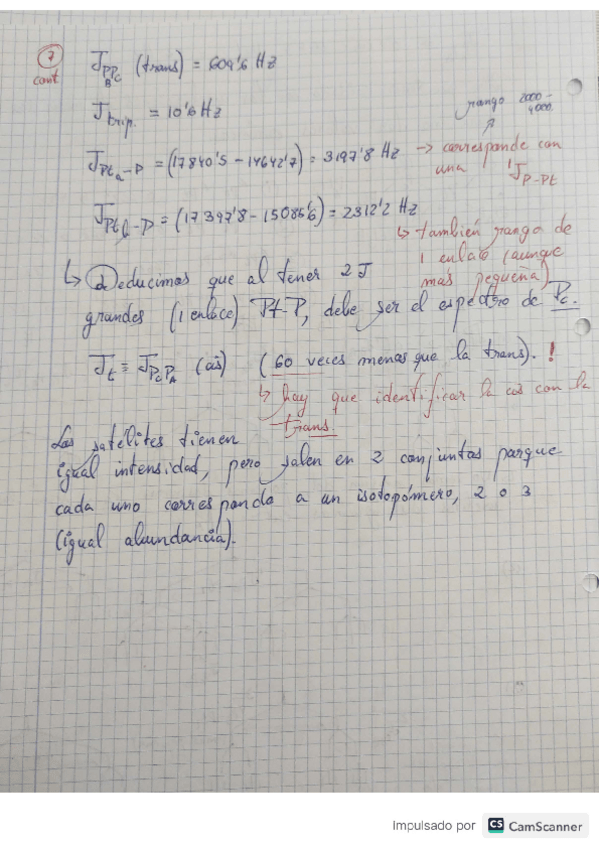 7 cont
J P_B P_C (trans) = 609'6 Hz
J trip. = 10'6 Hz
rango 2000-4000
J Pt_a-P = (17840'5 - 14642'7) = 3197'8 Hz → corresponde con una ¹J P-Pt
J Pt_b-P = (17397'8 - 15085'6) = 2312'2 Hz
↳ también rango de 1 enlace (aunque más pequeña)
↳ Deducimos que al tener 2 J
grandes (1 enlace) Pt-P, debe ser el espectro de P_C.
J_t ≡ J P_C P_A (cis) (60 veces menos que la trans). !
↳ hay que identificar la cis con la trans.
Los satélites tienen
igual intensidad, pero salen en 2 conjuntos porque
cada uno corresponde a un isotopómero, 2 o 3
(igual abundancia).
Impulsado por CS CamScanner